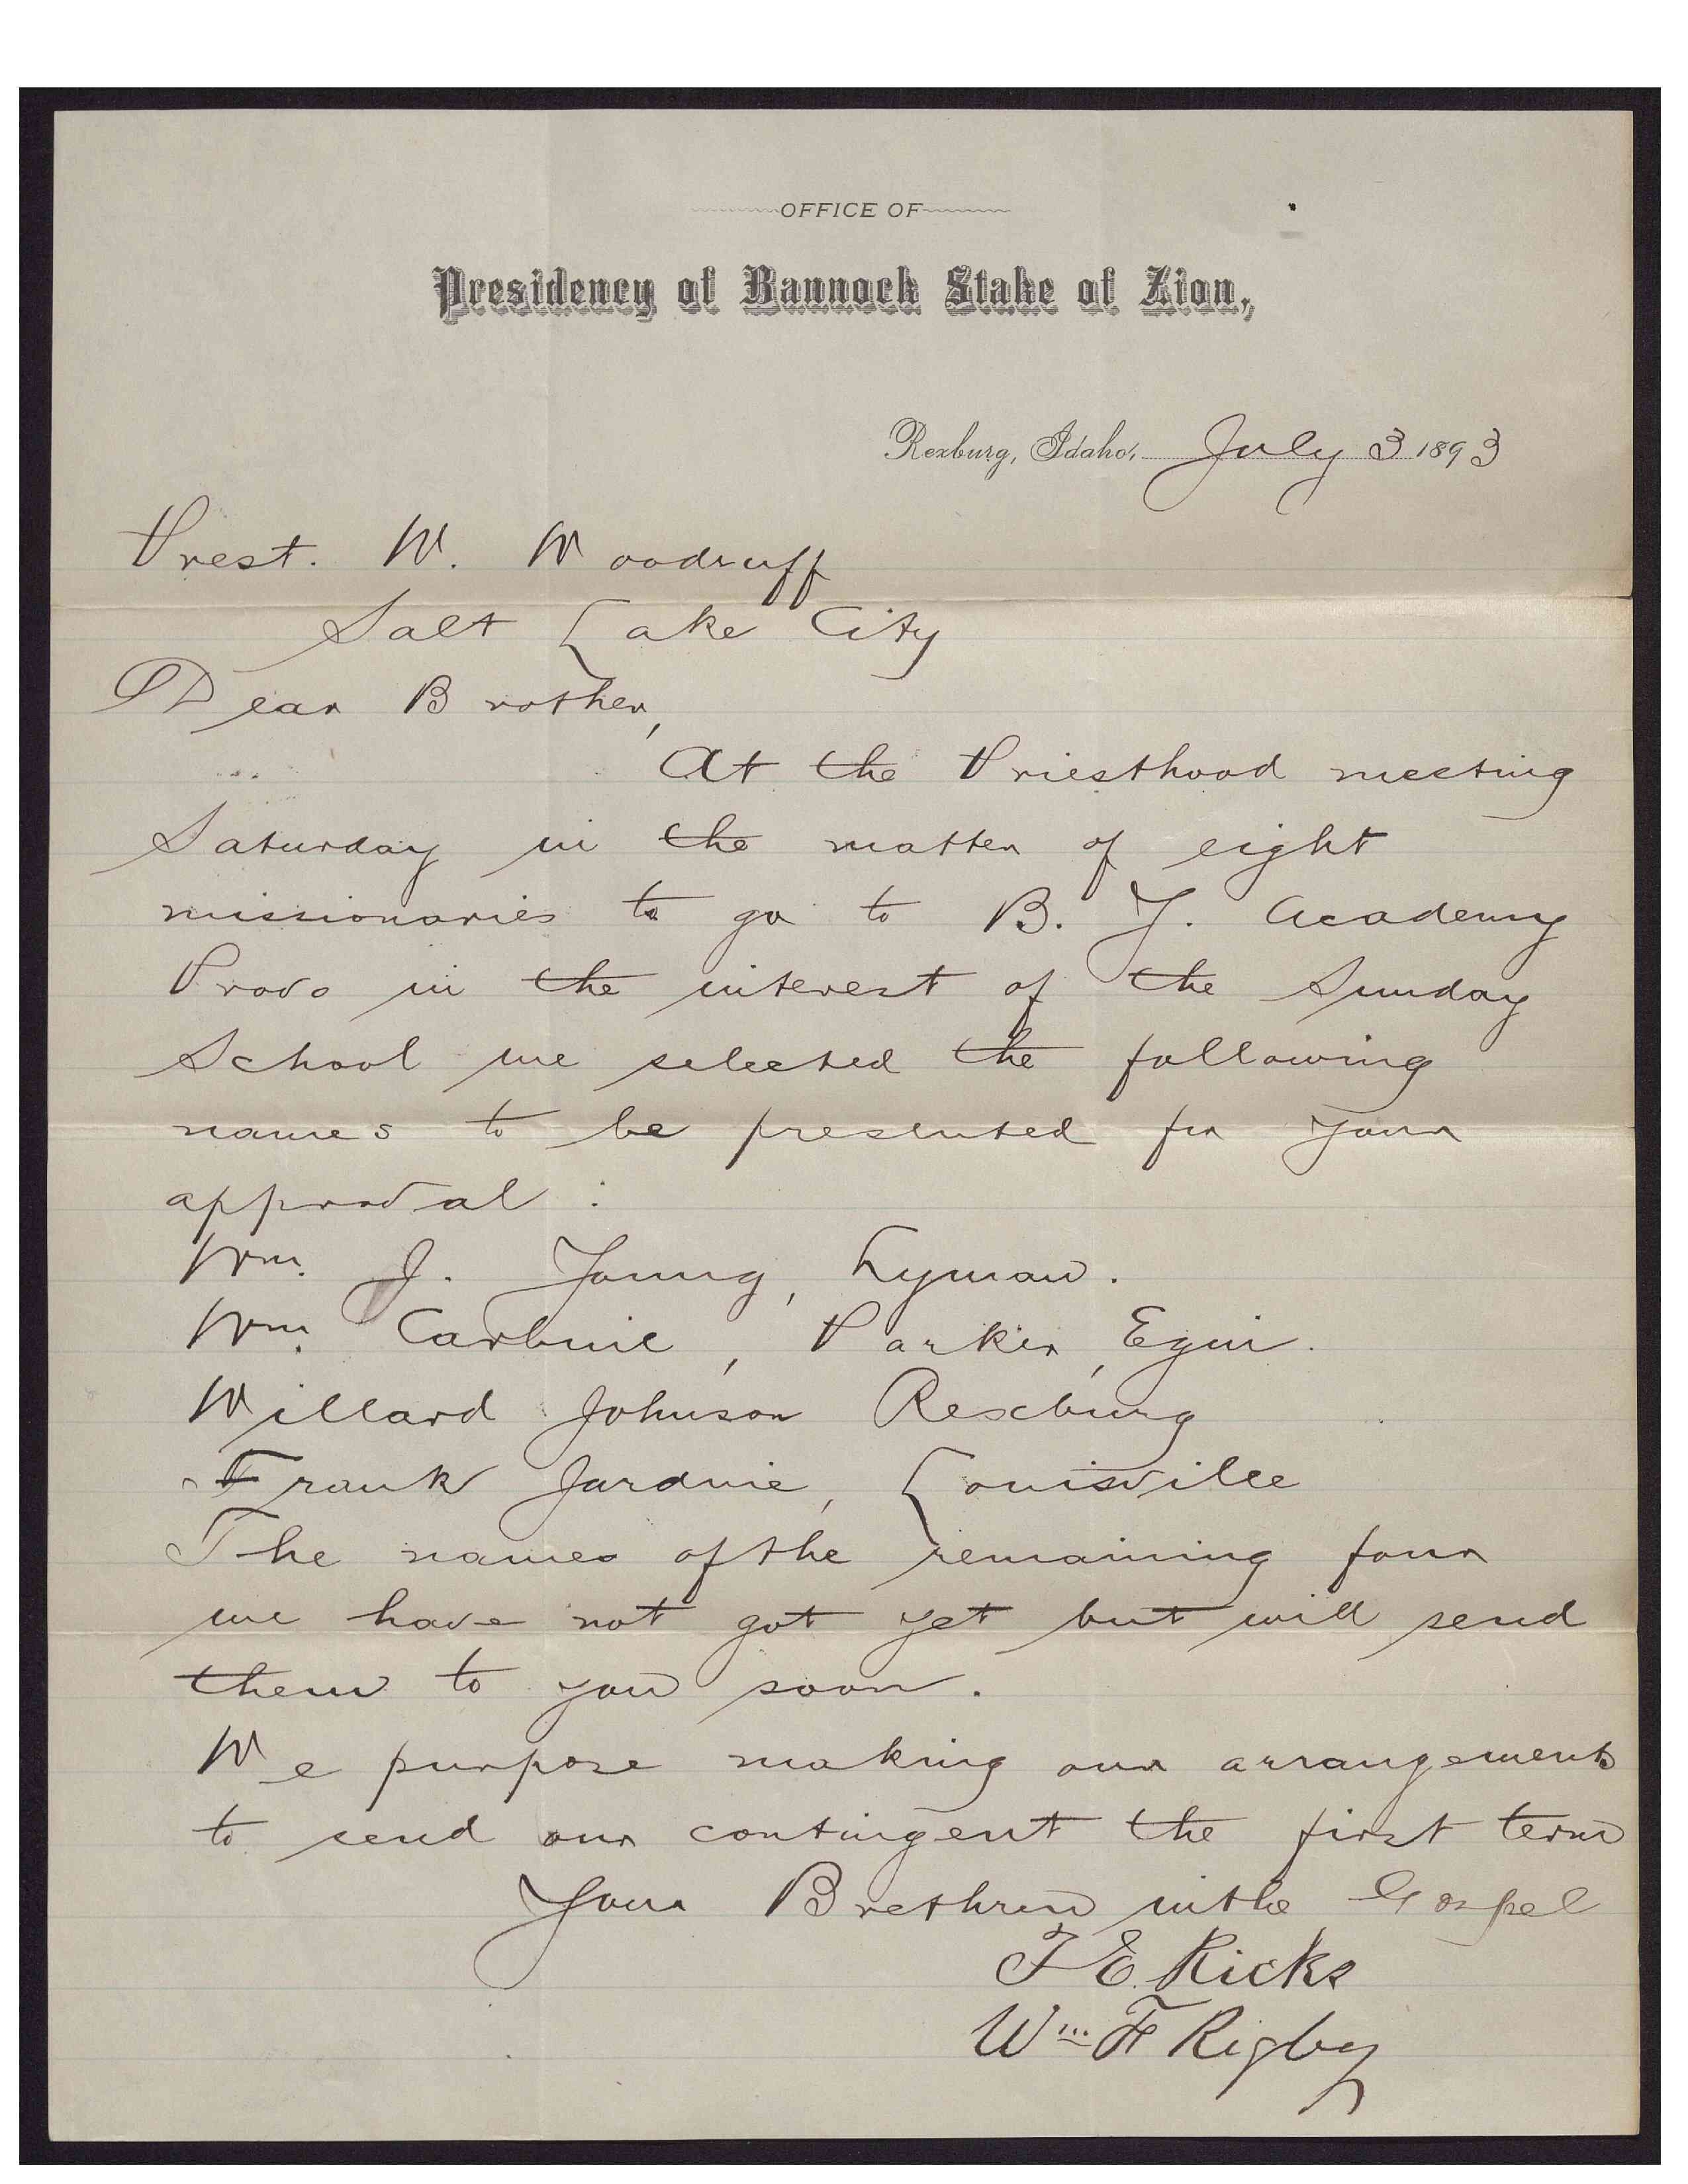 OFFICE OF
Presidency of Bannock Stake of Zion,
Rexburg, Idaho, July 3 1893
Prest. W. Woodruff
Salt Lake City
Dear Brother,
At the Priesthood meeting
Saturday in the matter of eight
missionaries to go to B. Y. Academy
Provo in the interest of the Sunday
School we selected the following
names to be presented for your
approval :
Wm. J. Young, Lyman.
Wm. Carbine, Parker, Egin.
Willard Johnson Rexburg
Frank Jardine, Louisville
The names of the remaining four
we have not got yet but will send
them to you soon.
We purpose making our arrangements
to send our contingent the first term
Your Brethren in the Gospel
T E. Ricks
Wm F Rigby